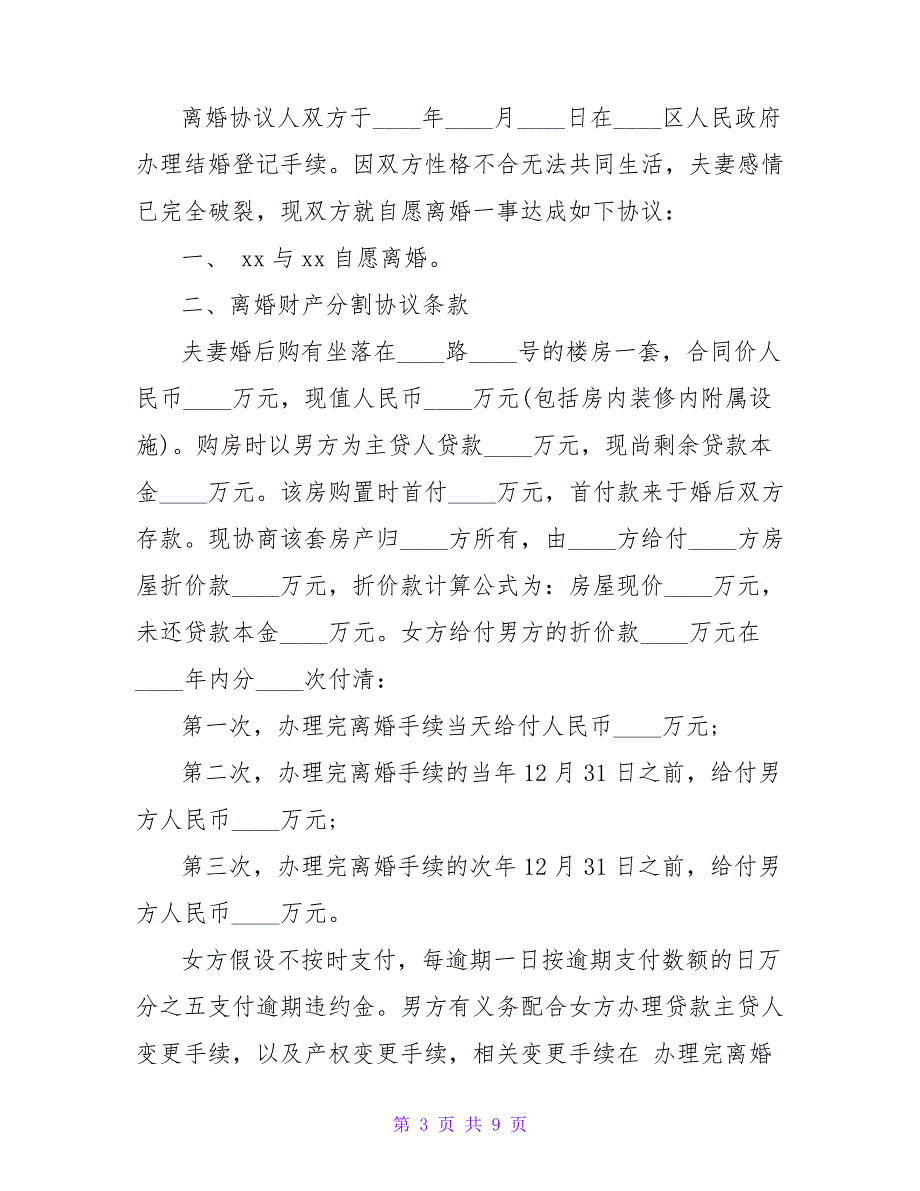 离婚协议人双方于____年____月____日在____区人民政府
办理结婚登记手续。因双方性格不合无法共同生活，夫妻感情
已完全破裂，现双方就自愿离婚一事达成如下协议：
一、 xx 与 xx 自愿离婚。
二、离婚财产分割协议条款
夫妻婚后购有坐落在____路____号的楼房一套，合同价人
民币____万元，现值人民币____万元(包括房内装修内附属设
施)。购房时以男方为主贷人贷款____万元，现尚剩余贷款本
金____万元。该房购置时首付____万元，首付款来于婚后双方
存款。现协商该套房产归____方所有，由____方给付____方房
屋折价款____万元，折价款计算公式为：房屋现价____万元，
未还贷款本金____万元。女方给付男方的折价款____万元在
____年内分____次付清：
第一次，办理完离婚手续当天给付人民币____万元;
第二次，办理完离婚手续的当年 12 月 31 日之前，给付男
方人民币____万元;
第三次，办理完离婚手续的次年 12 月 31 日之前，给付男
方人民币____万元。
女方假设不按时支付，每逾期一日按逾期支付数额的日万
分之五支付逾期违约金。男方有义务配合女方办理贷款主贷人
变更手续，以及产权变更手续，相关变更手续在 办理完离婚
第 3 页 共 9 页